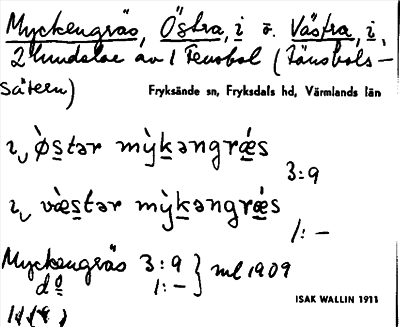 Myckengräs, Östra, i o. Västra, i,
2 lundelar av 1 Fensbol (Fänsbols-
säteri)
Fryksände sn, Fryksdals hd, Värmlands län
ı‿ ø̀stər mỳkəngrǽs
3:9
ı‿ væ̀stər mỳkəngrǽs
1:-
Myckengräs 3:9 } ml 1909
do 1:-
ISAK WALLIN 1911